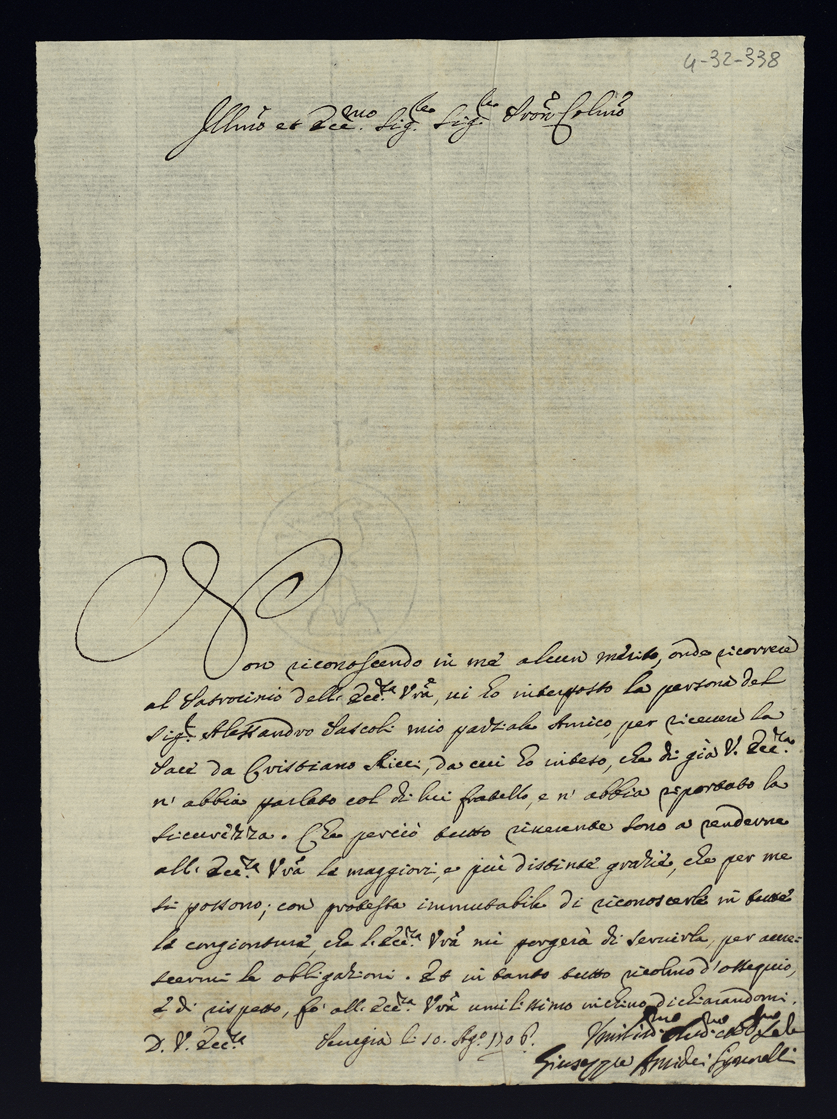 4-32-338
Illmo et Ecc.mo Sig.re Sig.re Pron Colmo
Non riconoscendo in me alcun merito, onde ricorrere
al Patrocinio dell' Ecc.za Vra, vi hò interposto la persona del
Sig.r Alessandro Pascoli mio parziale Amico, per ricevere la
Pace da Cristiano Ricci, da cui hò inteso, che di già V. Ecc.za
n' abbia parlato col di lui fratello, e n' abbia riportato la
sicurezza. Che perciò tutto riverente sono a renderne
all' Ecc.za Vra le maggiori, e più distinte grazie, che per me
si possono; con protesta immutabile di riconoscerle in tutte
le congionture, che l' Ecc.za Vra mi porgerà di servirla, per accre-
scermi le obligazioni. Et in tanto tutto ricolmo d'ossequio,
e di rispetto, fò all' Ecc.za Vra umilissimo inchino dichiarandomi.
D. V. Ecc.za
li 10. Agо 1706.
Giuseppe Amidei Signorelli